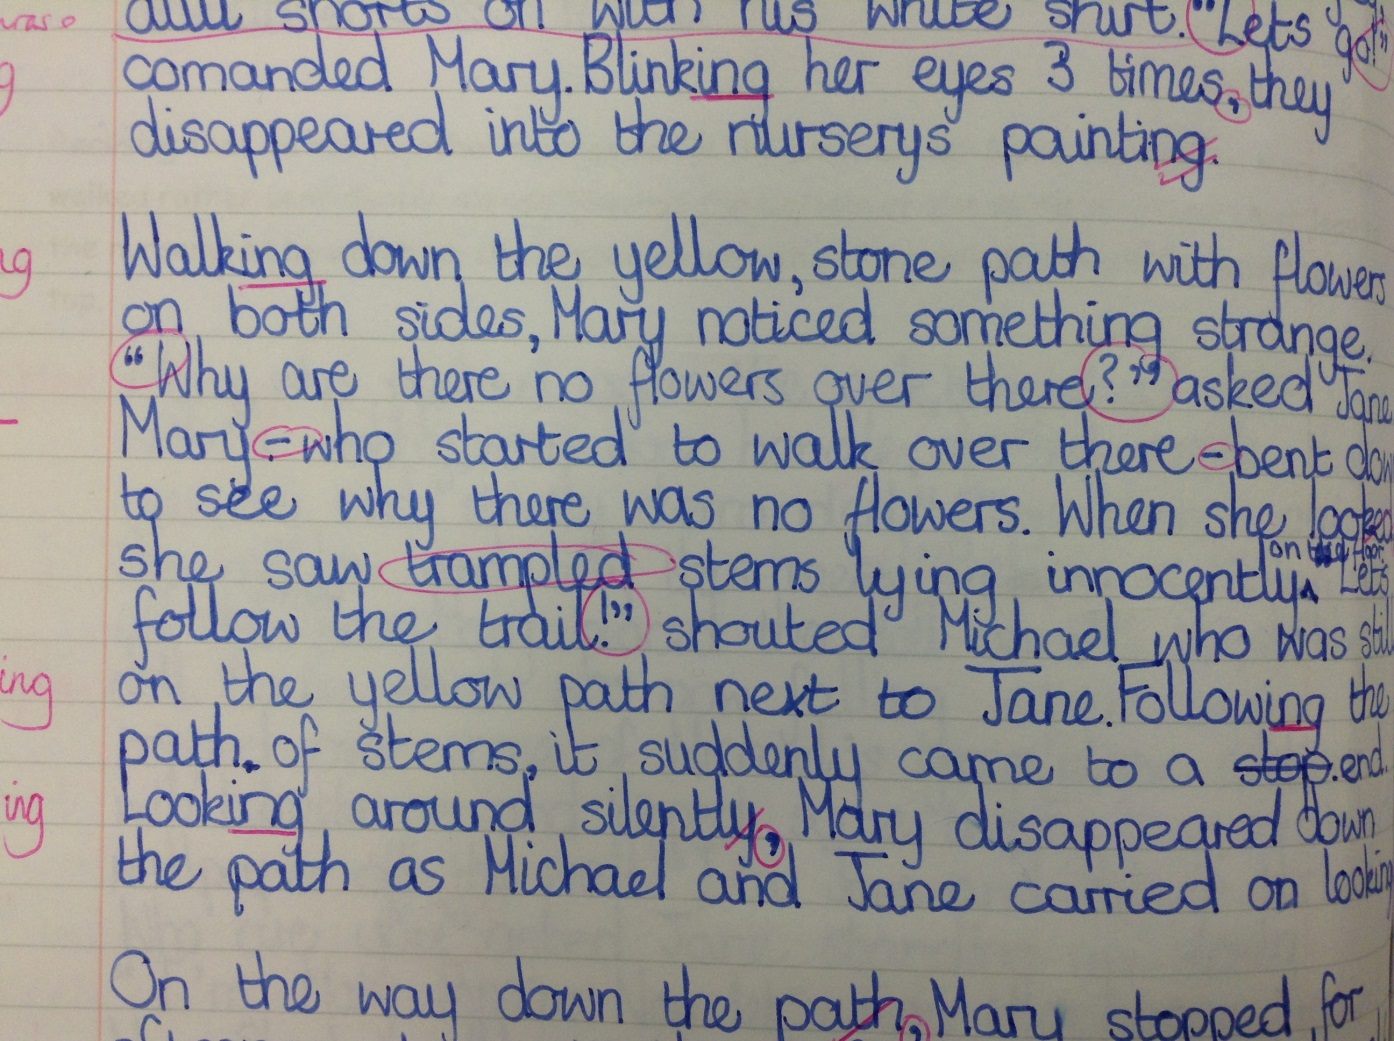 shorts on with his white shirt. "Lets go!"
comanded Mary. Blinking her eyes 3 times, they
disappeared into the nurserys painting.
ng
Walking down the yellow, stone path with flowers
on both sides, Mary noticed something strange.
"Why are there no flowers over there?" asked Jane
Mary - who started to walk over there - bent down
to see why there was no flowers. When she looked
she saw trampled stems lying innocently on the floor. "Lets
follow the trail!" shouted Michael who was still
ing
on the yellow path next to Jane. Following the
path. of stems, it suddenly came to a stop. end.
ing
Looking around silently, Mary disappeared down
the path as Michael and Jane carried on looking
On the way down the path, Mary stopped for